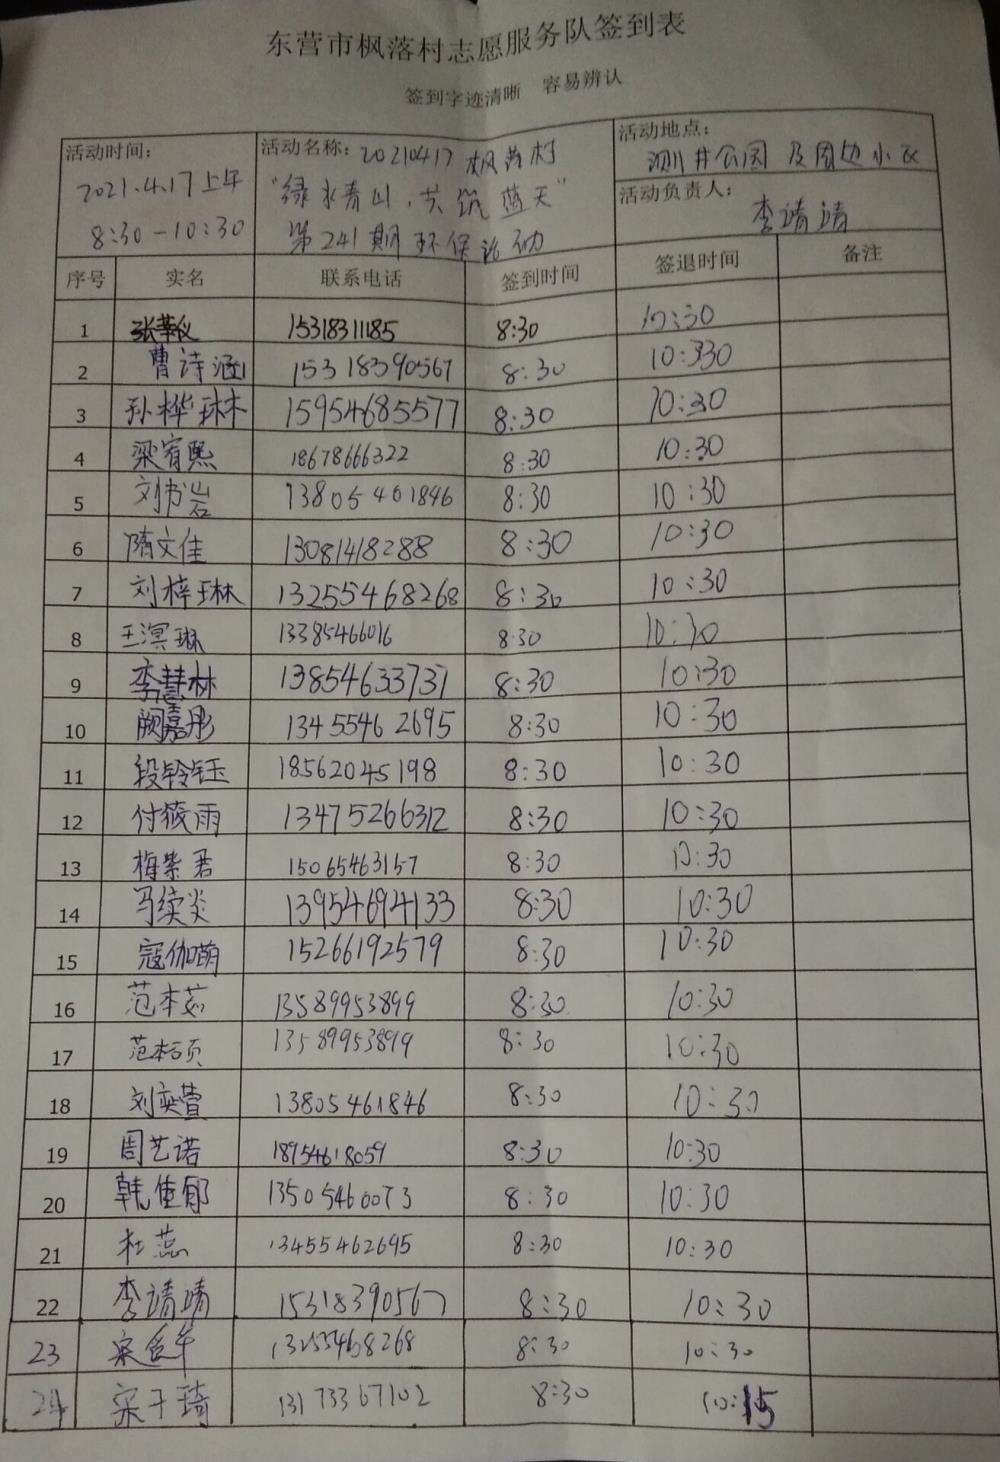 东营市枫落村志愿服务队签到表
签到字迹清晰 容易辨认
活动时间: 2021.4.17上午 8:30-10:30
活动名称: 20210417枫落村
"绿水青山,共筑蓝天"
第241期环保活动
活动地点: 测井公园及周边小区
活动负责人: 李靖靖
序号 实名 联系电话 签到时间 签退时间 备注
1 15318311185 8:30 10:30
2 曹诗涵 15318390567 8:30 10:330
3 孙桦琳 15954685577 8:30 10:30
4 梁宥熙 18678666322 8:30 10:30
5 刘书岩 13805461846 8:30 10:30
6 隋文佳 13081418288 8:30 10:30
7 刘梓琳 13255468268 8:30 10:30
8 王溟琳 13385466016 8:30 10:30
9 李慧林 13854633737 8:30 10:30
10 阚嘉彤 13455462695 8:30 10:30
11 段铃钰 18562045198 8:30 10:30
12 付筱雨 13475266312 8:30 10:30
13 梅紫君 15065463157 8:30 10:30
14 马续炎 13954694133 8:30 10:30
15 寇伽萌 15266192579 8:30 10:30
16 范本茹 13589953899 8:30 10:30
17 范本硕 13589953899 8:30 10:30
18 刘奕萱 13805461846 8:30 10:30
19 周艺诺 18954618059 8:30 10:30
20 韩佳郁 13505460073 8:30 10:30
21 杜蕊 13455462695 8:30 10:30
22 李靖靖 15318390567 8:30 10:30
23 13255468268 8:30 10:30
24 宋子琦 13173367102 8:30 10:15